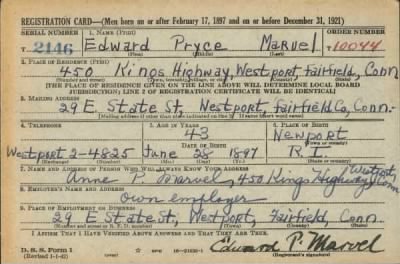 REGISTRATION CARD—(Men born on or after February 17, 1897 and on or before December 31, 1921)
SERIAL NUMBER 1. NAME (Print) ORDER NUMBER
T 2146 Edward Pryce Marvel 10044
(First) (Middle) (Last)
2. PLACE OF RESIDENCE (Print)
450 Kings Highway, Westport, Fairfield, Conn
(Number and street) (Town, township, village, or city) (County) (State)
[THE PLACE OF RESIDENCE GIVEN ON THE LINE ABOVE WILL DETERMINE LOCAL BOARD
JURISDICTION; LINE 2 OF REGISTRATION CERTIFICATE WILL BE IDENTICAL]
3. MAILING ADDRESS
29 E State St, Westport, Fairfield Co, Conn.
[Mailing address if other than place indicated on line 2. If same insert word same]
4. TELEPHONE 5. AGE IN YEARS 6. PLACE OF BIRTH
43 Newport
DATE OF BIRTH (Town or county)
Westport 2-4825 June 28 1897 R. I.
(Exchange) (Number) (Mo.) (Day) (Yr.) (State or country)
7. NAME AND ADDRESS OF PERSON WHO WILL ALWAYS KNOW YOUR ADDRESS
P. Marvel, 450 Kings Highway Westport Conn
8. EMPLOYER'S NAME AND ADDRESS
own employer
9. PLACE OF EMPLOYMENT OR BUSINESS
29 E State St, Westport, Fairfield, Conn.
(Number and street or R. F. D. number) (Town) (County) (State)
I AFFIRM THAT I HAVE VERIFIED ABOVE ANSWERS AND THAT THEY ARE TRUE.
D. S. S. Form 1
(Revised 1-1-42) (over)
Edward P. Marvel
(Registrant's signature)